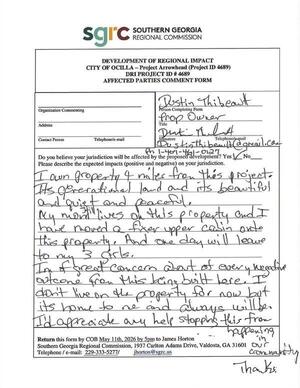 sgrc SOUTHERN GEORGIA
REGIONAL COMMISSION
DEVELOPMENT OF REGIONAL IMPACT
CITY OF OCILLA – Project Arrowhead (Project ID 4689)
DRI PROJECT ID # 4689
AFFECTED PARTIES COMMENT FORM
Organization Commenting
Address
Contact Person Telephone/e-mail
Dustin Thibeault
Person Completing Form
Prop Owner
Title
Signature
Dustinthibeault@gmail.com
Telephone/e-mail
Do you believe your jurisdiction will be affected by the proposed development? Yes ✓ No
Please describe the expected impacts (positive and negative) on your jurisdiction.
I own property 4 miles from this project.
Its generational land and its beautiful
and quiet and peaceful.
My mom still lives on this property and I
have moved a fixer upper cabin onto
this property. And one day will leave
to my 3 Girls.
I'm of great concern about every negative
outcome from this being built here. I
don't live on the property for now but
its home to me and always will be.
I'd appreciate any help stopping this from
happening
in
our
community
Thanks
Return this form by COB May 11th, 2026 by 5pm to James Horton
Southern Georgia Regional Commission, 1937 Carlton Adams Drive, Valdosta, GA 31601
Telephone: 229-333-5277/ jhorton@sgrc.us